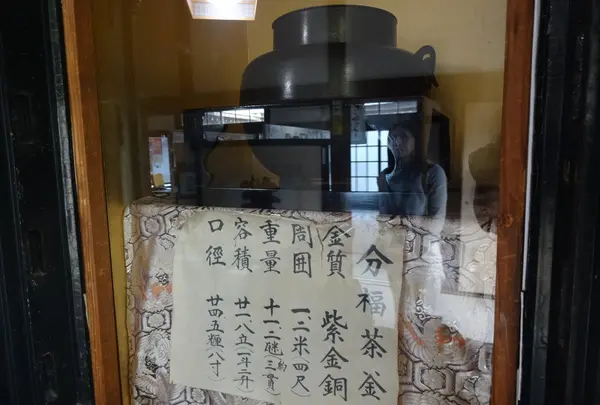 分福茶釜
金質 紫金銅
周囲 一.二米(四尺)
重量 十一.二瓩(約三貫)
容積 廿一.八立(一斗二升)
口徑 廿四.五糎(八寸)